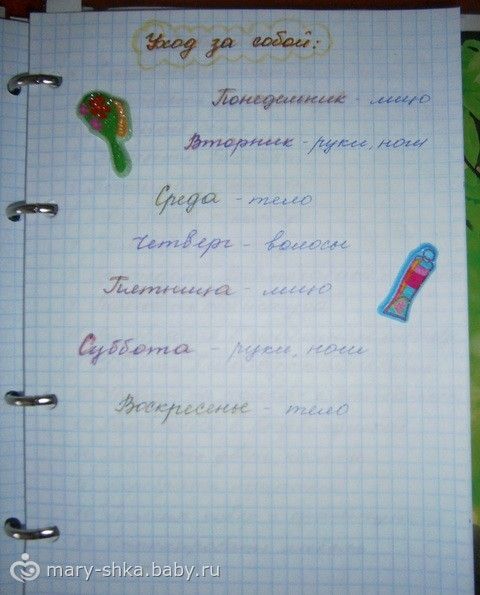 Уход за собой:
Понедельник - лицо
Вторник - руки, ноги
Среда - тело
Четверг - волосы
Пятница - лицо
Суббота - руки, ноги
Воскресенье - тело
mary-shka.baby.ru